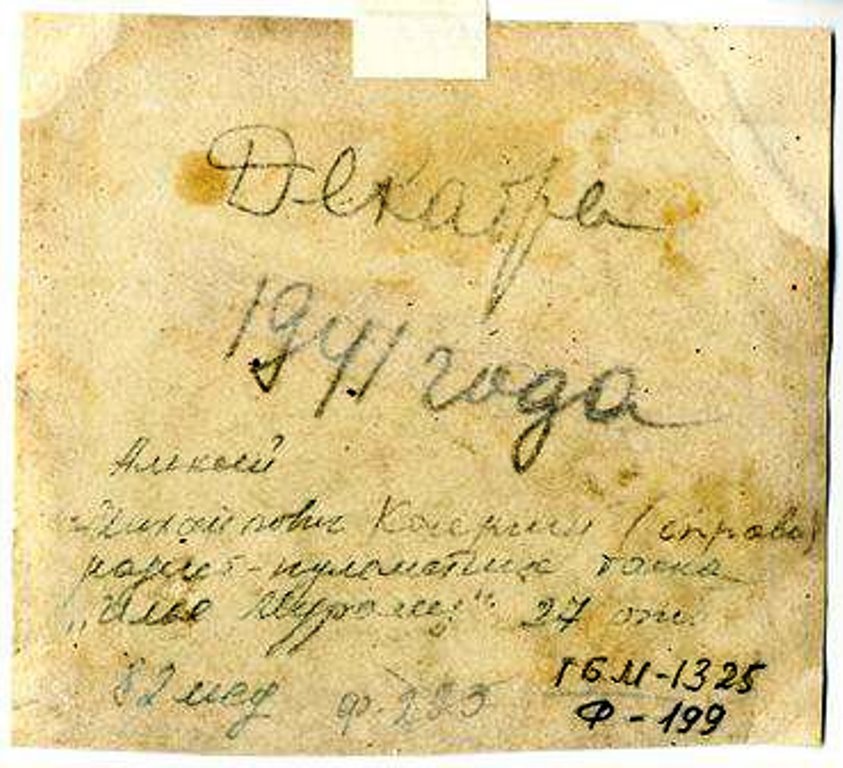 Декабрь
1941 года
Алексей
Михайлович (справа)
радист-пулеметчик танка
„Илья Муромец" 27
82 ф. 225
ГБМ-1325
Ф-199